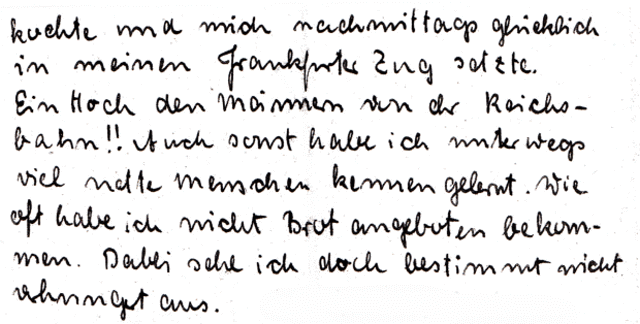 kochte und mich nachmittags glücklich
in meinen Frankfurter Zug setzte.
Ein Hoch den Männern von der Reichs-
bahn!! Auch sonst habe ich unterwegs
viel nette Menschen kennen gelernt. Wie
oft habe ich nicht Brot angeboten bekom-
men. Dabei sehe ich doch bestimmt nicht
aus.